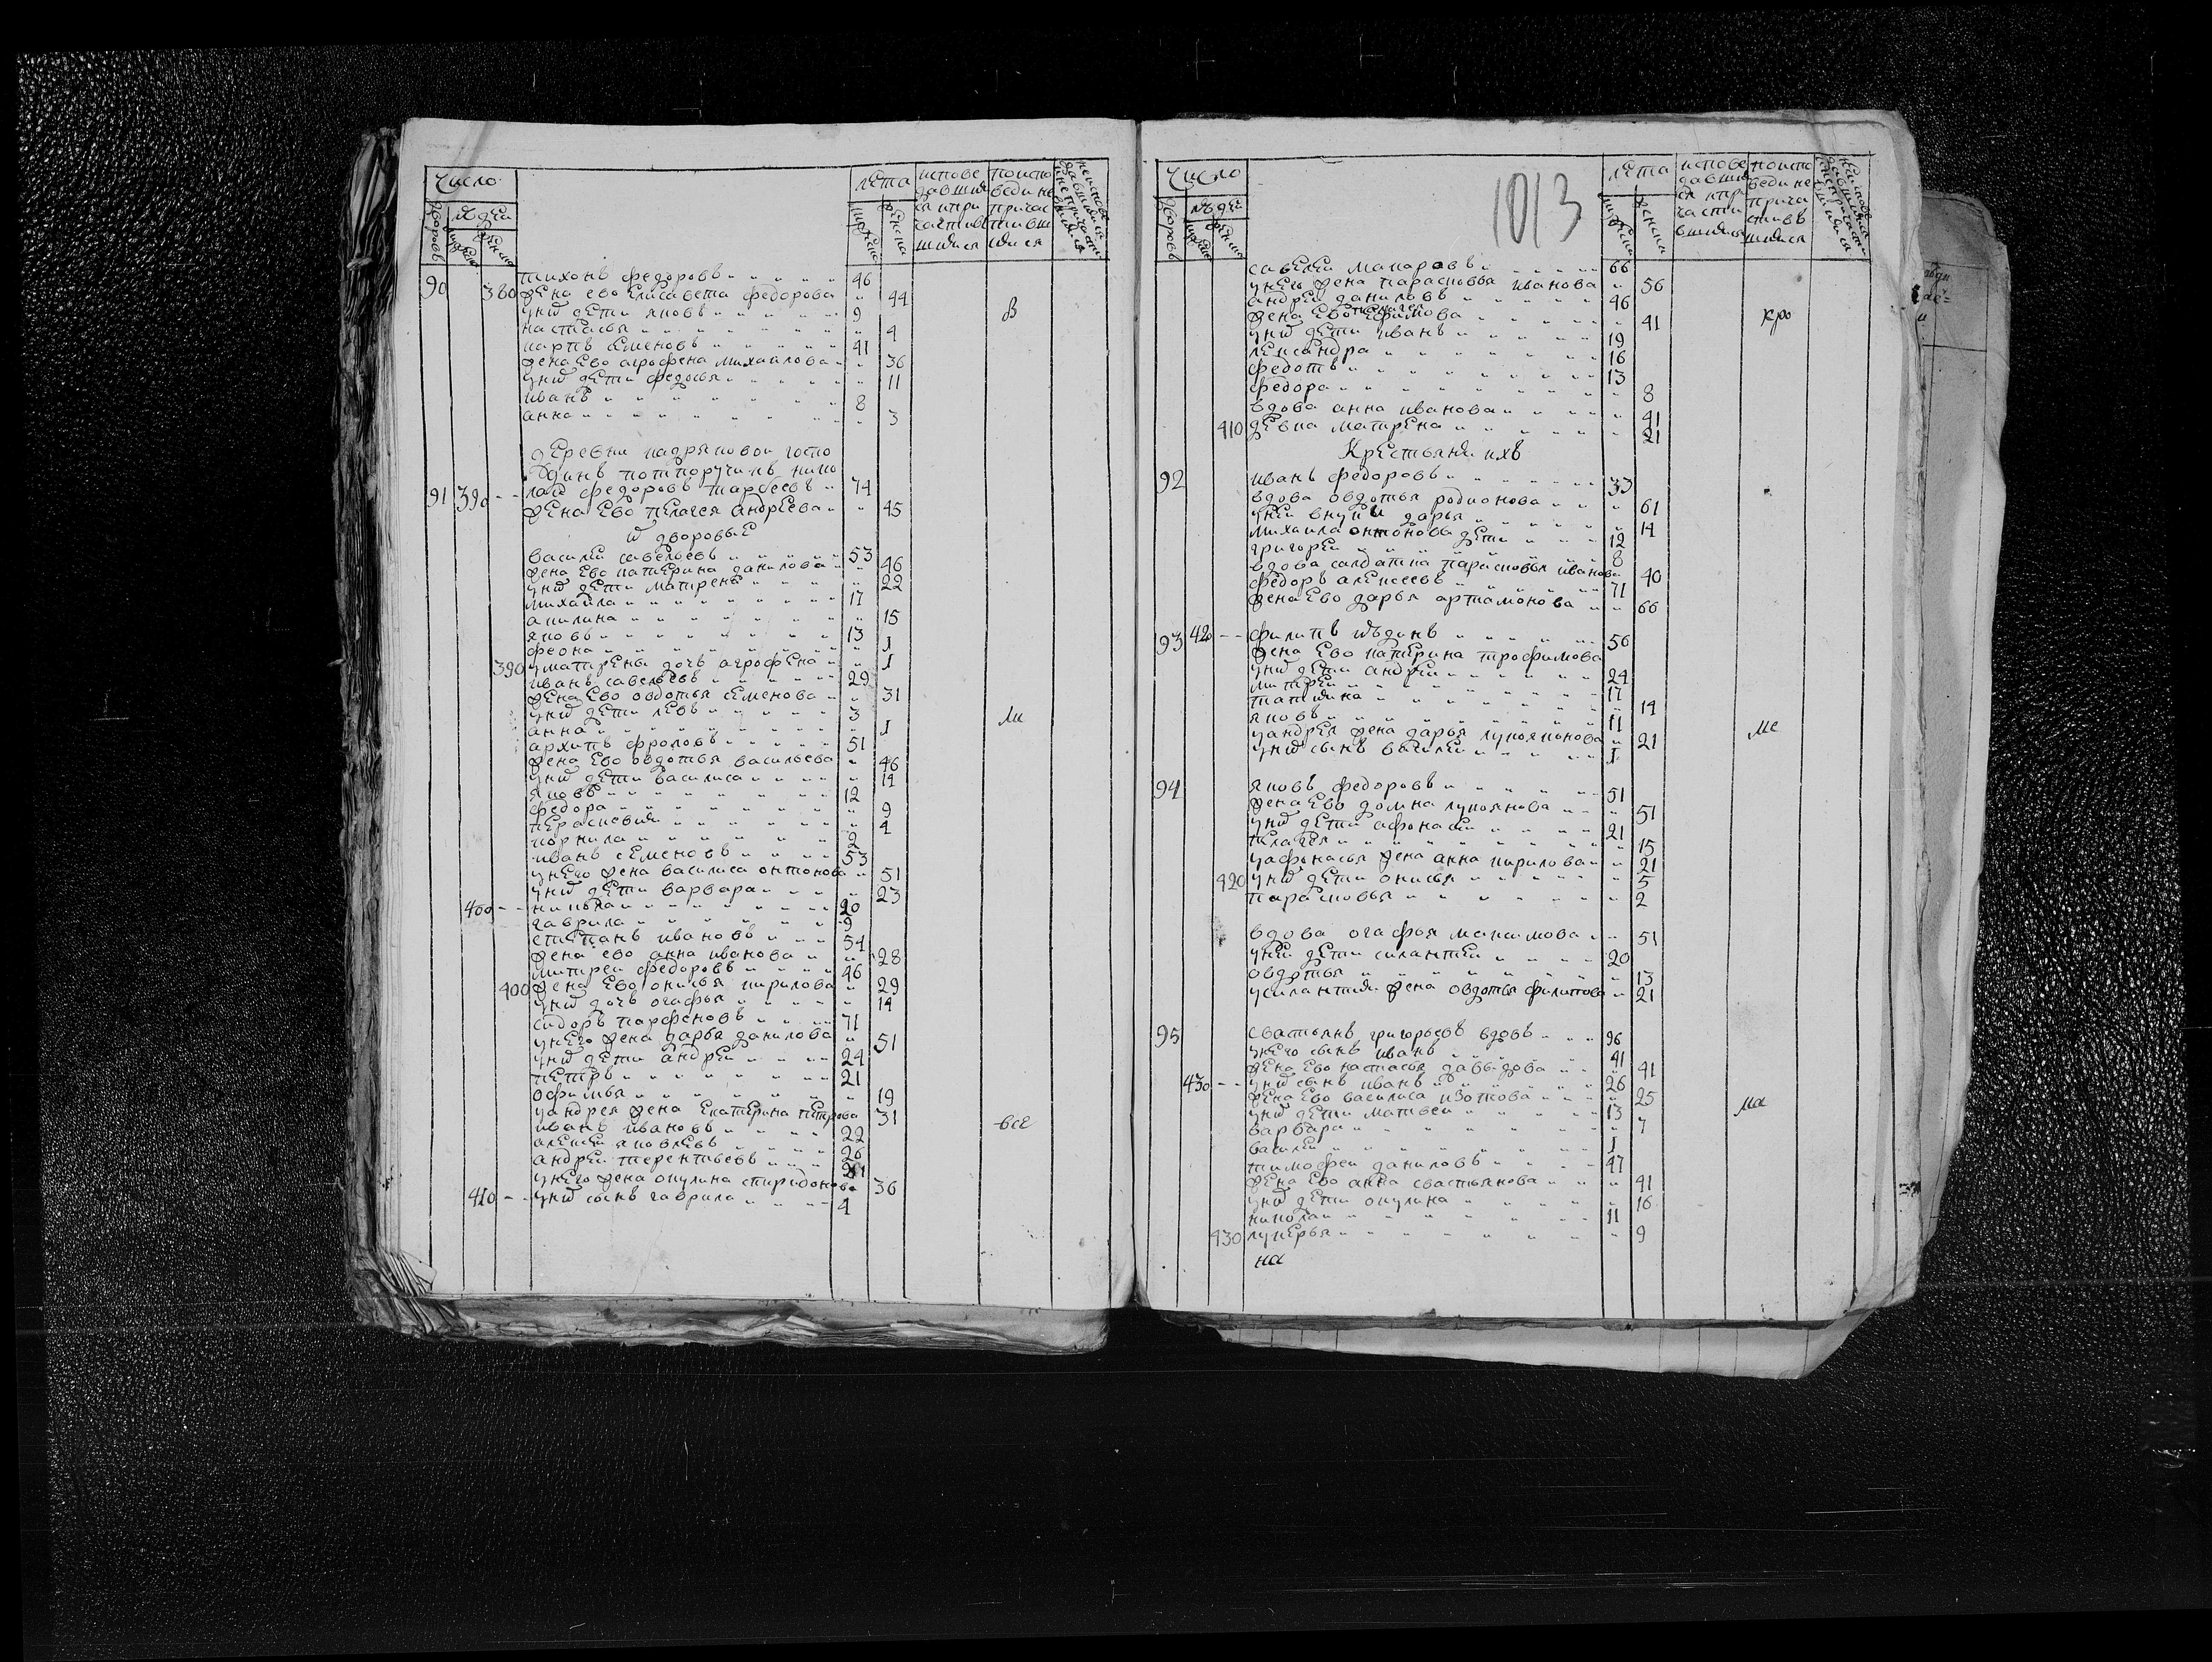 число
дворовъ
людеи
мужеска
женска
лета
мужеска
женска
исповедавшия ся и причастившияся
по исповеди не причастившияся
90 тихонъ федоровъ 46
380 жена ево елисавета федорова 44
у нихъ дети яковъ 9
настасья 4
карпъ семеновъ 41
жена ево агрофена михаилова 36
у нихъ дети федосья 11
иванъ 8
анна 3
в
деревни кадряковои госпо
динъ потпоручикъ нико
91 390 лаи федоровъ тарбеевъ 74
жена ево пелагея андреева 45
их дворовые
василеи савельевъ 53
жена ево катерина данилова 46
у нихъ дети матрена 22
михаила 17
акилина 15
яковъ 13
феона 1
390 у матрены дочь агрофена 1
иванъ савельевъ 29
жена ево овдотья семенова 31
у нихъ дети левъ 3
анна 1
архипъ фроловъ 51
жена ево овдотья васильева 46
у нихъ дети василиса 14
яковъ 12
федора 9
перасковия 4
корнила 2
иванъ семеновъ 53
у него жена василиса онтонова 51
у нихъ дети варвара 23
400 никола 20
гаврила 9
степанъ ивановъ 54
жена ево анна иванова 28
митреи федоровъ 46
400 жена ево онисья кирилова 29
у нихъ дочь огафья 14
сидоръ парфеновъ 71
у него жена дарья данилова 51
у нихъ дети андреи 24
петръ 21
офимья 19
у андрея жена екатерина петрова 31
иванъ ивановъ 22
алексеи яковлевъ 26
андреи терентьевъ
у него жена окулина спиридонова 36
410 у нихъ сынъ гаврила 4
ли
все
1013
число
дворовъ
людеи
мужеска
женска
лета
мужеска
женска
исповедавшияся и причастившияся
по исповеди не причастившияся
савелеи макаровъ 66
у него жена парасковья иванова 56
андреи даниловъ 46
жена ево ефимова 41
у нихъ дети иванъ 19
лександра 16
федотъ 13
федора 8
вдова анна иванова 41
410 девка матрена 21
кро
Крестьяня ихъ
92 иванъ федоровъ 33
вдова овдотья родионова 61
у неи внуки дарья 14
михаила онтонова дети 12
григореи 8
вдова салдатка парасковья иванова 40
федоръ алексеевъ 71
жена ево дарья артамонова 66
93 420 филипъ 56
жена ево катерина трофимова
у нихъ дети андреи 24
митреи 17
татияна 14
яковъ 11
у андрея жена дарья лукоянонова 21
у нихъ сынъ василеи 1
ме
94 яковъ федоровъ 51
жена ево домна лукоянова 51
у нихъ дети афонасеи 21
пелагея 15
у афонасья жена анна кирилова 21
420 у нихъ дети онисья 5
парасковья 2
вдова огафья максимова 51
у неи дети силантеи 20
овдотья 13
у силантия жена овдотья филипова 21
95 свастьянъ григорьевъ вдовъ 96
у него сынъ иванъ 41
жена ево настасья давыдова 41
430 у нихъ сынъ иванъ 26
жена ево василиса изотова 25
у нихъ дети матвеи 13
варвара 7
василеи 1
тимофеи даниловъ 47
жена ево анна свастьянова 41
у нихъ дети окулина 16
никола 11
430 лукерья 9
ма
на